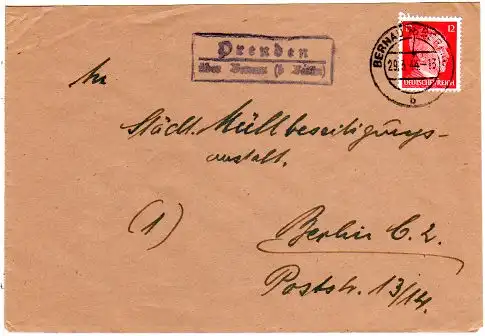 Prenden
über Bernau (b Berlin)
BERNAU
29.3.44-13
b
12
DEUTSCHES REICH
An
Städt. Müllbeseitigungs-
anstalt.
(1)
Berlin C. 2.
Poststr. 13/14.